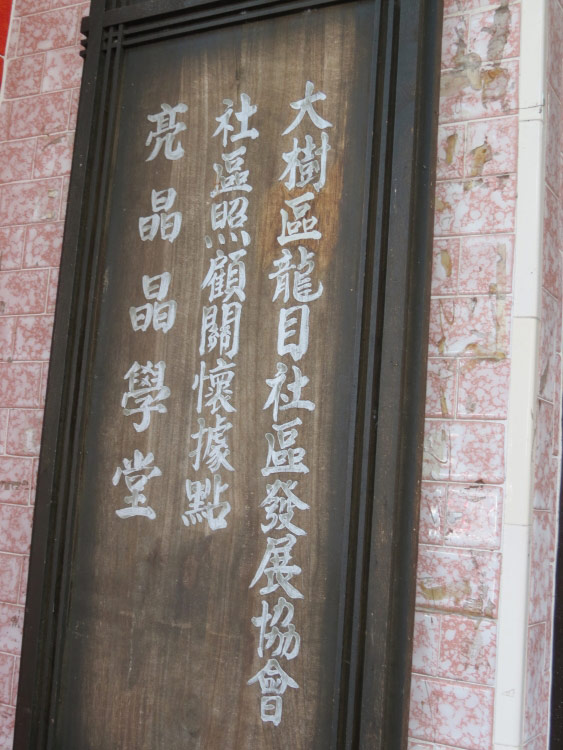 大樹區龍目社區發展協會
社區照顧關懷據點
亮晶晶學堂